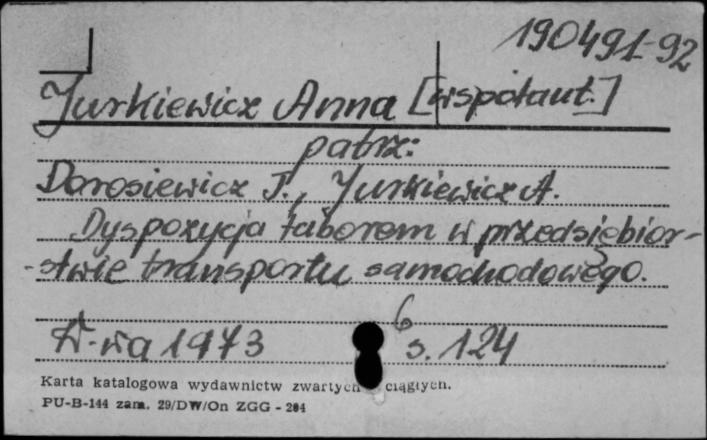 190491-92
Jurkiewicz Anna [współaut.]
patrz:
Dorosiewicz J., Jurkiewicz A.
Dyspozycja taborem w przedsiębior-
-stwie transportu samochodowego.
W-wa 1973 s. 124
6
Karta katalogowa wydawnictw zwartych ciągłych.
PU-B-144 zam. 29/DW/On ZGG - 204